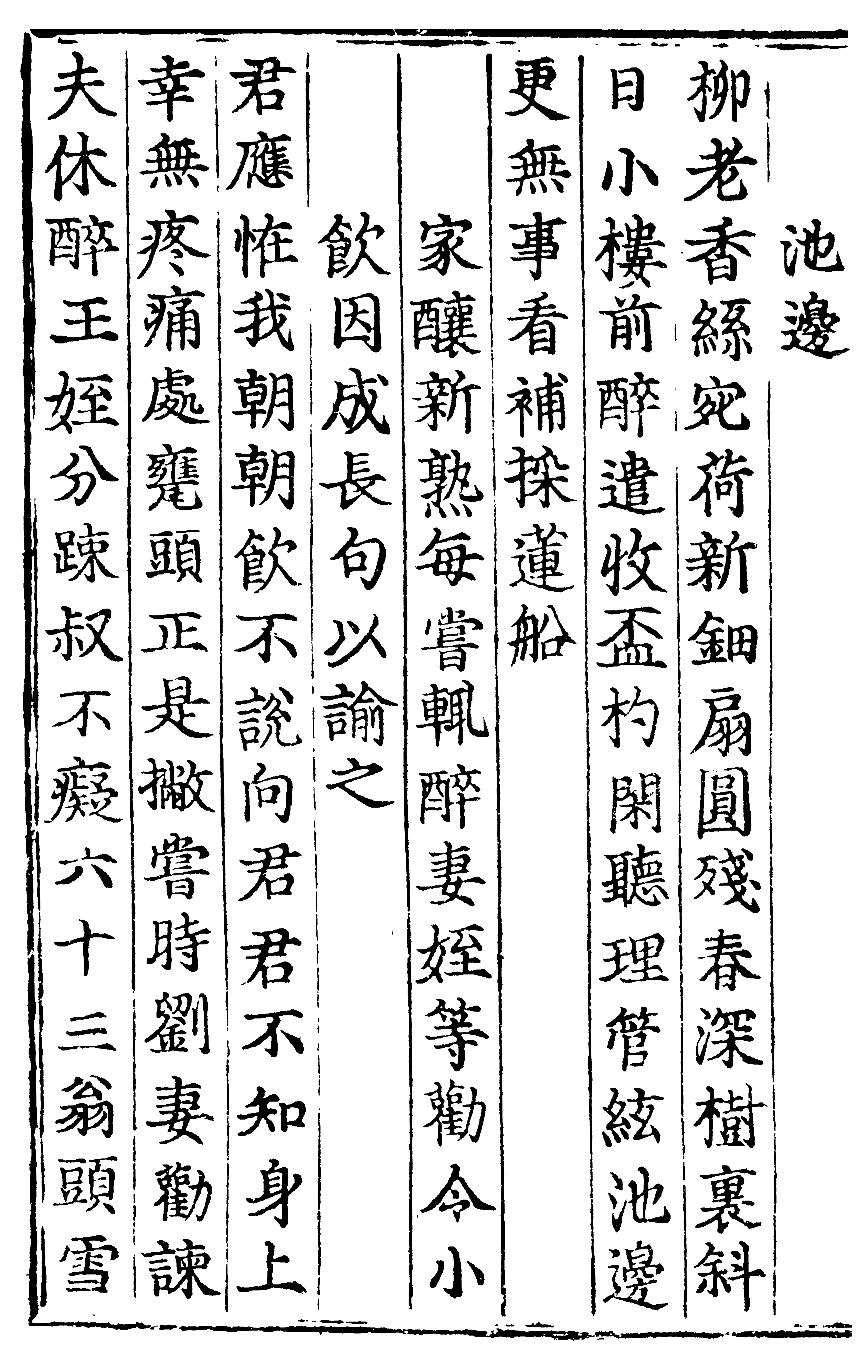 池邊
柳老香絲宛荷新鈿扇圓殘春深樹裏斜
日小樓前醉遣收盃杓閑聽理管絃池邊
更無事看補採蓮船
家釀新熟每嘗輒醉妻姪等勸令小
飲因成長句以諭之
君應恠我朝朝飲不說向君君不知身上
幸無疼痛處甕頭正是撇嘗時劉妻勸諫
夫休醉王姪分踈叔不癡六十三翁頭雪